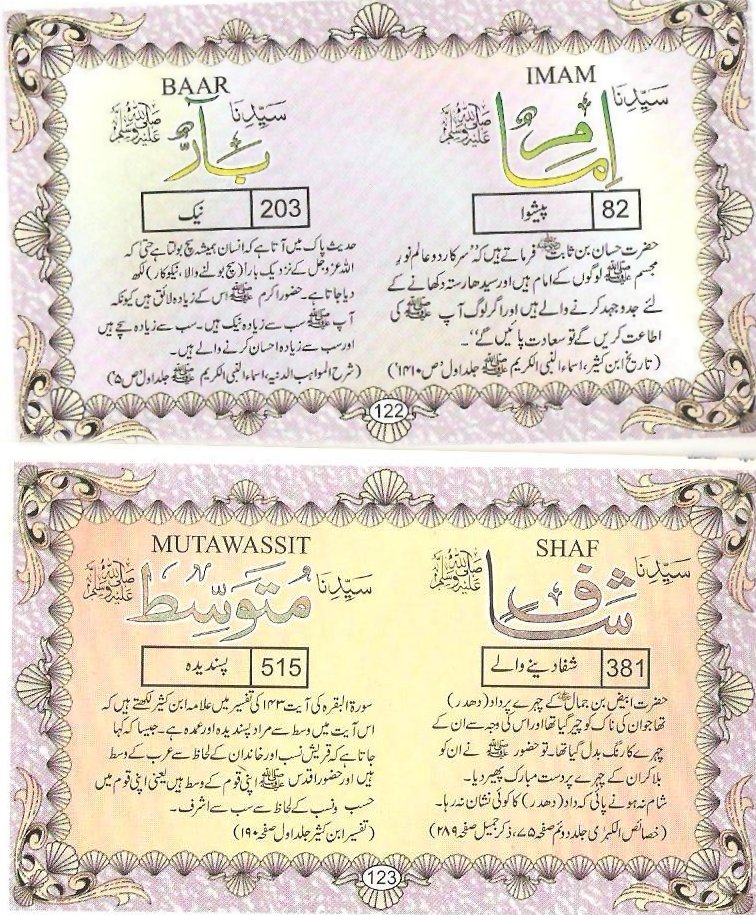 IMAM
سیّدنا امام صلی اللہ علیہ وسلم
82 پیشوا
حضرت حسان بن ثابت رضی اللہ عنہ فرماتے ہیں کہ ’’سرکار دو عالم نورِ
مجسم صلی اللہ علیہ وسلم لوگوں کے امام ہیں اور سیدھا رستہ دکھانے کے
لئے جدوجہد کرنے والے ہیں اور اگر لوگ آپ صلی اللہ علیہ وسلم کی
اطاعت کریں گے تو سعادت پائیں گے‘‘۔
(تاریخ ابن کثیر، اسماء النبی الکریم صلی اللہ علیہ وسلم جلد اول ص ۱۴۱۰)
BAAR
سیّدنا بآرّ صلی اللہ علیہ وسلم
203 نیک
حدیث پاک میں آتا ہے کہ انسان ہمیشہ سچ بولتا ہے حتیٰ کہ
اللہ عزوجل کے نزدیک بار (سچ بولنے والا، نیکوکار) لکھ
دیا جاتا ہے۔ حضور اکرم صلی اللہ علیہ وسلم اس کے زیادہ لائق ہیں کیونکہ
آپ صلی اللہ علیہ وسلم سب سے زیادہ نیک ہیں۔ سب سے زیادہ سچے ہیں
اور سب سے زیادہ احسان کرنے والے ہیں۔
(شرح المواہب الدنیہ، اسماء النبی الکریم صلی اللہ علیہ وسلم جلد اول ص ۵)
122
SHAF
سیّدنا شاف صلی اللہ علیہ وسلم
381 شفا دینے والے
حضرت ابیض بن جمال رضی اللہ عنہ کے چہرے پر داد (دھدر)
تھا جو ان کی ناک کو چیر گیا تھا اور اس کی وجہ سے ان کے
چہرے کا رنگ بدل گیا تھا۔ تو حضور صلی اللہ علیہ وسلم نے ان کو
بلا کر ان کے چہرے پر دست مبارک پھیر دیا۔
شام نہ ہونے پائی کہ داد (دھدر) کا کوئی نشان نہ رہا۔
(خصائص الکبریٰ جلد دوئم صفحہ ۷۵، ذکر جمیل صفحہ ۲۸۹)
MUTAWASSIT
سیّدنا متوسّط صلی اللہ علیہ وسلم
515 پسندیدہ
سورۃ البقرہ کی آیت ۱۴۳ کی تفسیر میں علامہ ابن کثیر لکھتے ہیں کہ
اس آیت میں وسط سے مراد پسندیدہ اور عمدہ ہے۔ جیسا کہ کہا
جاتا ہے کہ قریش نسب اور خاندان کے لحاظ سے عرب کے وسط
ہیں اور حضور اقدس صلی اللہ علیہ وسلم اپنی قوم کے وسط ہیں یعنی اپنی قوم میں
حسب ونسب کے لحاظ سے سب سے اشرف۔
(تفسیر ابن کثیر جلد اول صفحہ ۱۹۰)
123